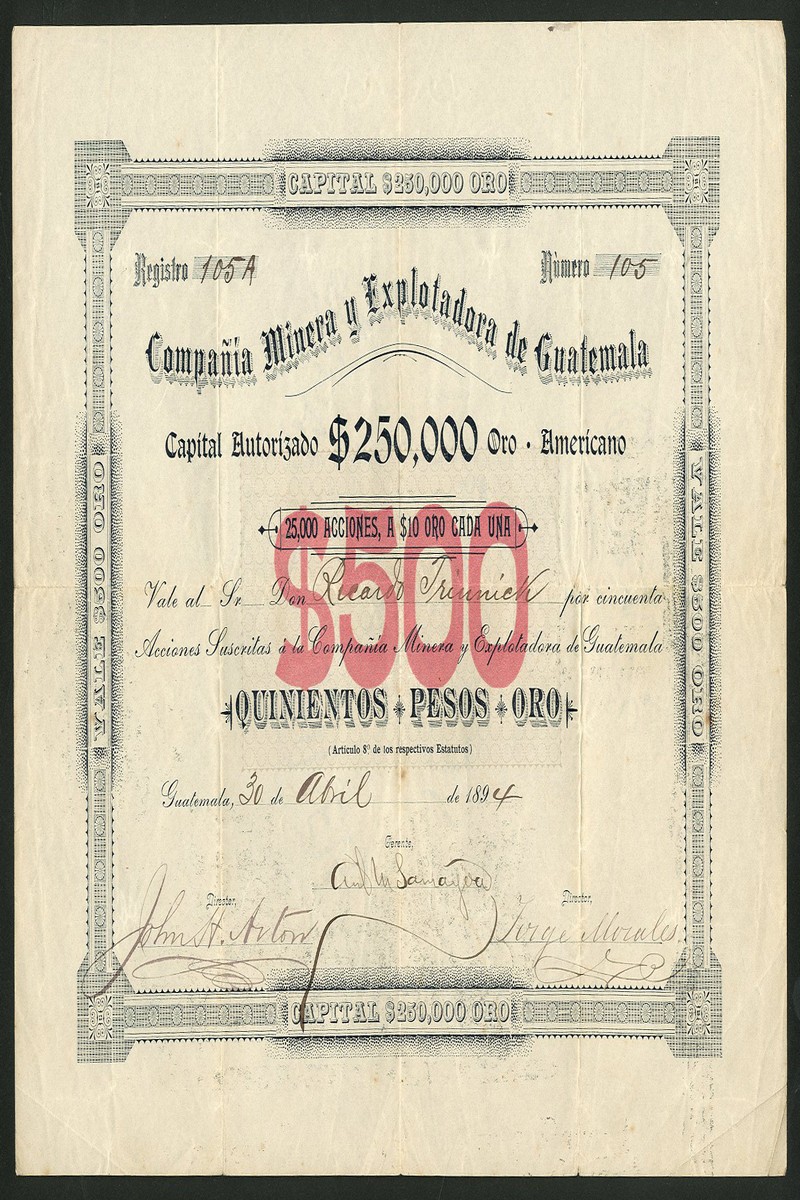 CAPITAL $250,000 ORO
Registro 105A Número 105
Compañia Minera y Explotadora de Guatemala
Capital Autorizado $250,000 Oro · Americano
$500
25,000 ACCIONES, A $10 ORO CADA UNA
Vale al Sr Don Ricardo Trinnick por cincuenta
Acciones Suscritas á la Compañia Minera y Explotadora de Guatemala
QUINIENTOS PESOS ORO
(Artículo 8º de los respectivos Estatutos)
Guatemala, 30 de Abril de 1894
Gerente,
Samayoa
Director, Director,
John H. Arton Jorge Morales
CAPITAL $250,000 ORO
VALE $500 ORO
VALE $500 ORO